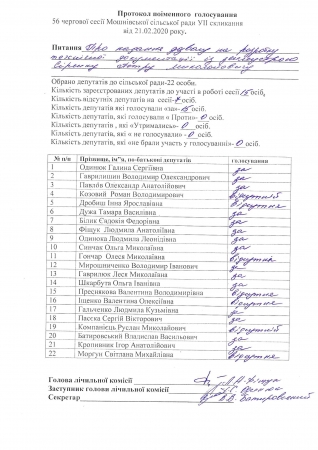 Протокол поіменного голосування
56 чергової сесії Мошнівської сільської ради VII скликання
від 21.02.2020 року.
Питання Про надання дозволу на розробку
технічної документації із землеустрою
Обрано депутатів до сільської ради-22 особи.
Кількість зареєстрованих депутатів до участі в роботі сесії 15 осіб.
Кількість відсутніх депутатів на сесії- осіб.
Кількість депутатів, які голосували «за»-15 осіб.
Кількість депутатів, які голосували « Проти»- 0 осіб.
Кількість депутатів, які «Утримались»- 0 осіб.
Кількість депутатів , які « не голосували» - 0 осіб.
Кількість депутатів, які «не брали участь у голосуванні»- 0 осіб.
№ п/п Прізвище, ім”я, по-батькові депутатів голосування
1 Одинюк Галина Сергіївна за
2 Гаврилишин Володимир Олександрович за
3 Павлов Олександр Анатолійович за
4 Козовий Роман Володимирович відсутній
5 Дробниш Інна Ярославівна за
6 Дужа Тамара Василівна за
7 Білик Євдокія Федорівна за
8 Фіщук Людмила Анатоліївна за
9 Одинока Людмила Леонідівна за
10 Спичак Ольга Миколаївна за
11 Гончар Олеся Миколаївна відсутня
12 Мирошниченко Володимир Іванович за
13 Гаврилюк Леся Миколаївна за
14 Шкарбута Ольга Іванівна за
15 Преснякова Валентина Володимирівна відсутня
16 Іщенко Валентина Олексіївна за
17 Гальченко Людмила Кузьмівна за
18 Пасєка Сергій Вікторович за
19 Компанієць Руслан Миколайович відсутній
20 Батировський Владислав Васильович за
21 Кропивник Ігор Анатолійович відсутній
22 Моргун Світлана Михайлівна відсутня
Голова лічильної комісії
Заступник голови лічильної комісії
Секретар